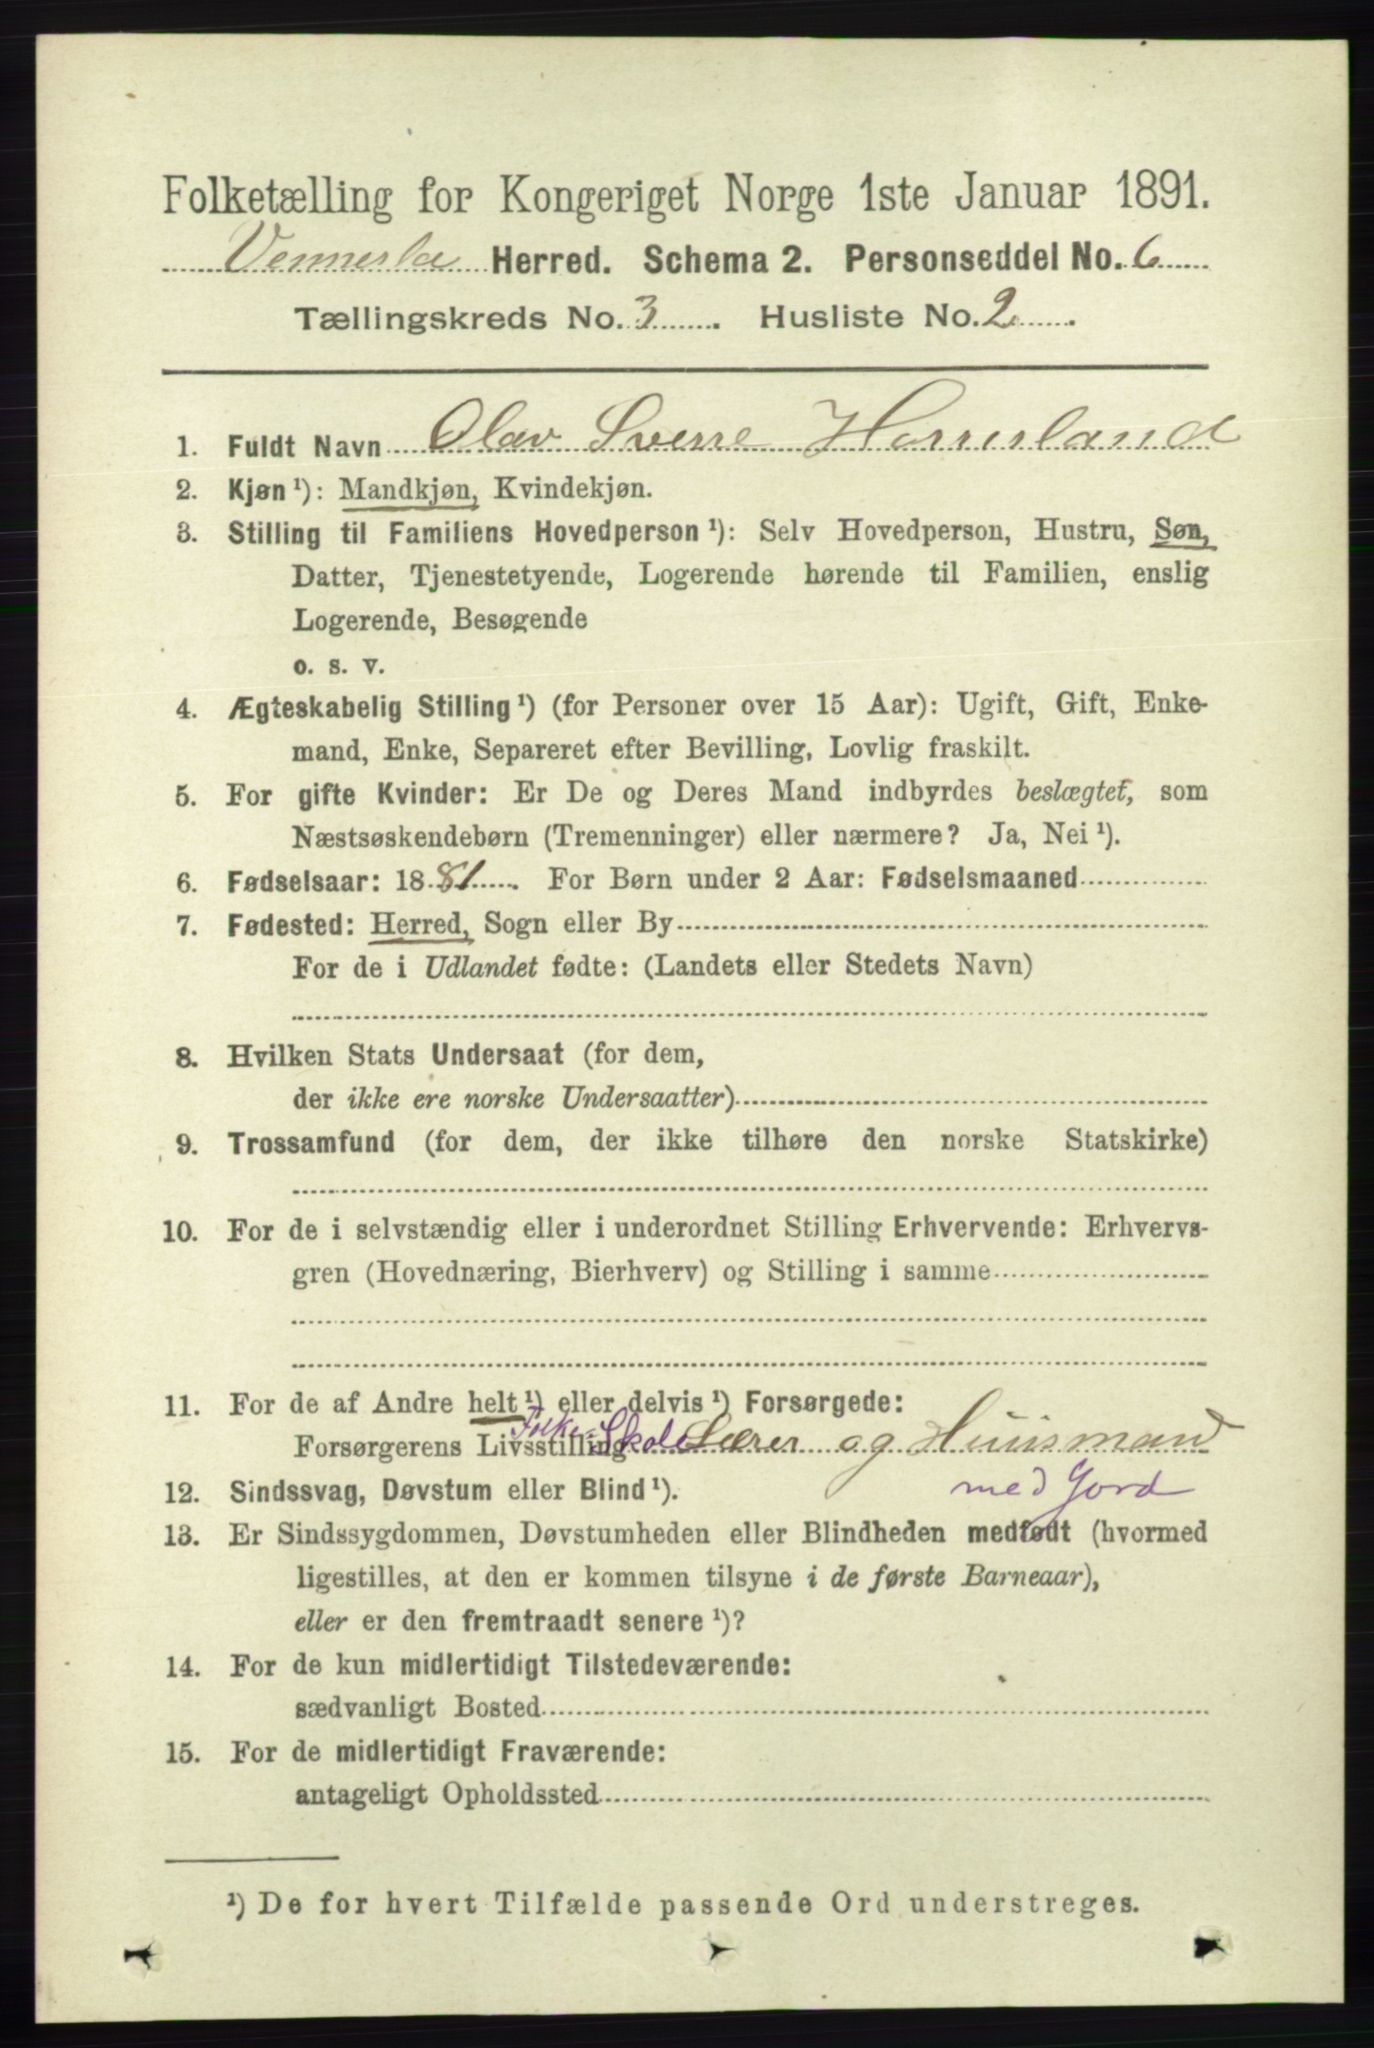 Folketælling for Kongeriget Norge 1ste Januar 1891.
Vennerla Herred. Schema 2. Personseddel No. 6
Tællingskreds No. 3. Husliste No. 2.
1. Fuldt Navn Olav Sverre Horrisland
2. Kjøn ¹): Mandkjøn, Kvindekjøn.
3. Stilling til Familiens Hovedperson ¹): Selv Hovedperson, Hustru, Søn,
Datter, Tjenestetyende, Logerende hørende til Familien, enslig
Logerende, Besøgende
o. s. v.
4. Ægteskabelig Stilling ¹) (for Personer over 15 Aar): Ugift, Gift, Enke-
mand, Enke, Separeret efter Bevilling, Lovlig fraskilt.
5. For gifte Kvinder: Er De og Deres Mand indbyrdes beslægtet, som
Næstsøskendebørn (Tremenninger) eller nærmere? Ja, Nei ¹).
6. Fødselsaar: 1881. For Børn under 2 Aar: Fødselsmaaned
7. Fødested: Herred, Sogn eller By
For de i Udlandet fødte: (Landets eller Stedets Navn)
8. Hvilken Stats Undersaat (for dem,
der ikke ere norske Undersaatter)
9. Trossamfund (for dem, der ikke tilhøre den norske Statskirke)
10. For de i selvstændig eller i underordnet Stilling Erhvervende: Erhvervs-
gren (Hovednæring, Bierhverv) og Stilling i samme
11. For de af Andre helt ¹) eller delvis ¹) Forsørgede:
Forsørgerens Livsstilling Folke-Skole Lærer og Huusmand
med Jord
12. Sindssvag, Døvstum eller Blind ¹).
13. Er Sindssygdommen, Døvstumheden eller Blindheden medfødt (hvormed
ligestilles, at den er kommen tilsyne i de første Barneaar),
eller er den fremtraadt senere ¹)?
14. For de kun midlertidigt Tilstedeværende:
sædvanligt Bosted
15. For de midlertidigt Fraværende:
antageligt Opholdssted
¹) De for hvert Tilfælde passende Ord understreges.